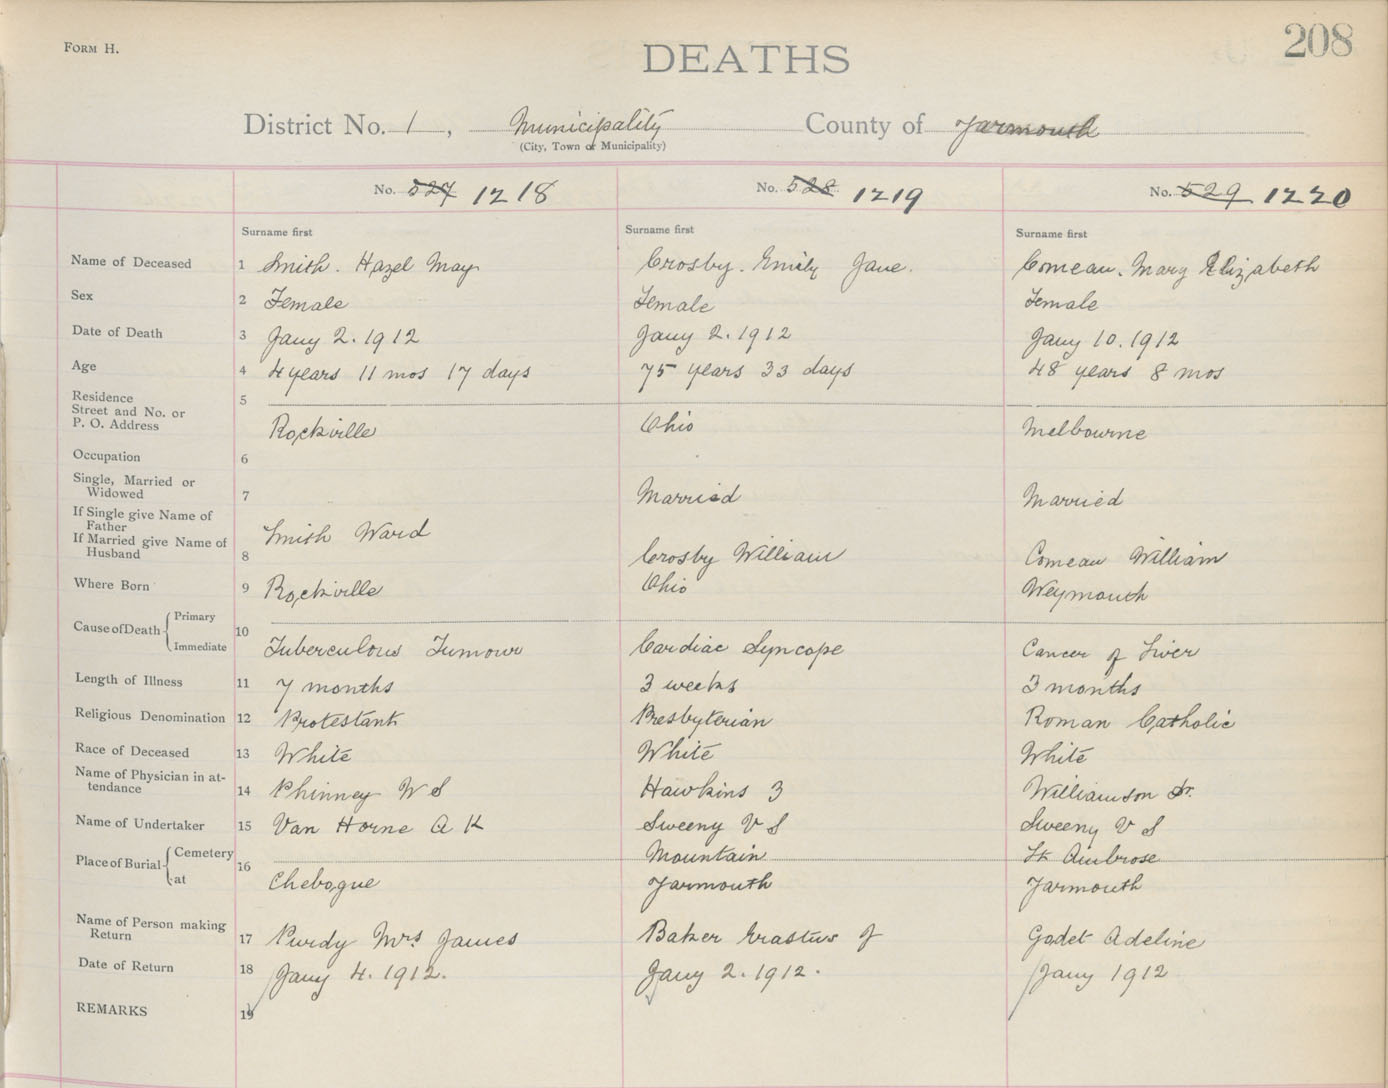 FORM H.
208
DEATHS
District No. 1, Municipality County of Yarmouth
(City, Town or Municipality)
No. 527 1218 No. 528 1219 No. 529 1220
Surname first Surname first Surname first
Name of Deceased 1 Smith. Hazel May Crosby. Emily Jane. Comeau. Mary Elizabeth
Sex 2 Female Female Female
Date of Death 3 Jany 2. 1912 Jany 2. 1912 Jany 10. 1912
Age 4 4 years 11 mos 17 days 75 years 33 days 48 years 8 mos
Residence 5
Street and No. or
P. O. Address Rockville Ohio Melbourne
Occupation 6
Single, Married or
Widowed 7 Married Married
If Single give Name of
Father Smith Ward
If Married give Name of
Husband 8 Crosby William Comeau William
Where Born 9 Rockville Ohio Weymouth
Cause of Death Primary 10
Immediate Tuberculous Tumour Cardiac Syncope Cancer of Liver
Length of Illness 11 7 months 3 weeks 3 months
Religious Denomination 12 Protestant Presbyterian Roman Catholic
Race of Deceased 13 White White White
Name of Physician in at-
tendance 14 Phinney W S Hawkins Z Williamson Dr.
Name of Undertaker 15 Van Horne A K Sweeny V S Sweeny V S
Place of Burial Cemetery 16 Mountain St Ambrose
at Chebogue Yarmouth Yarmouth
Name of Person making
Return 17 Purdy Mrs James Baker Erastus J Godet Adeline
Date of Return 18 Jany 4. 1912. Jany 2. 1912. Jany 1912
REMARKS 19